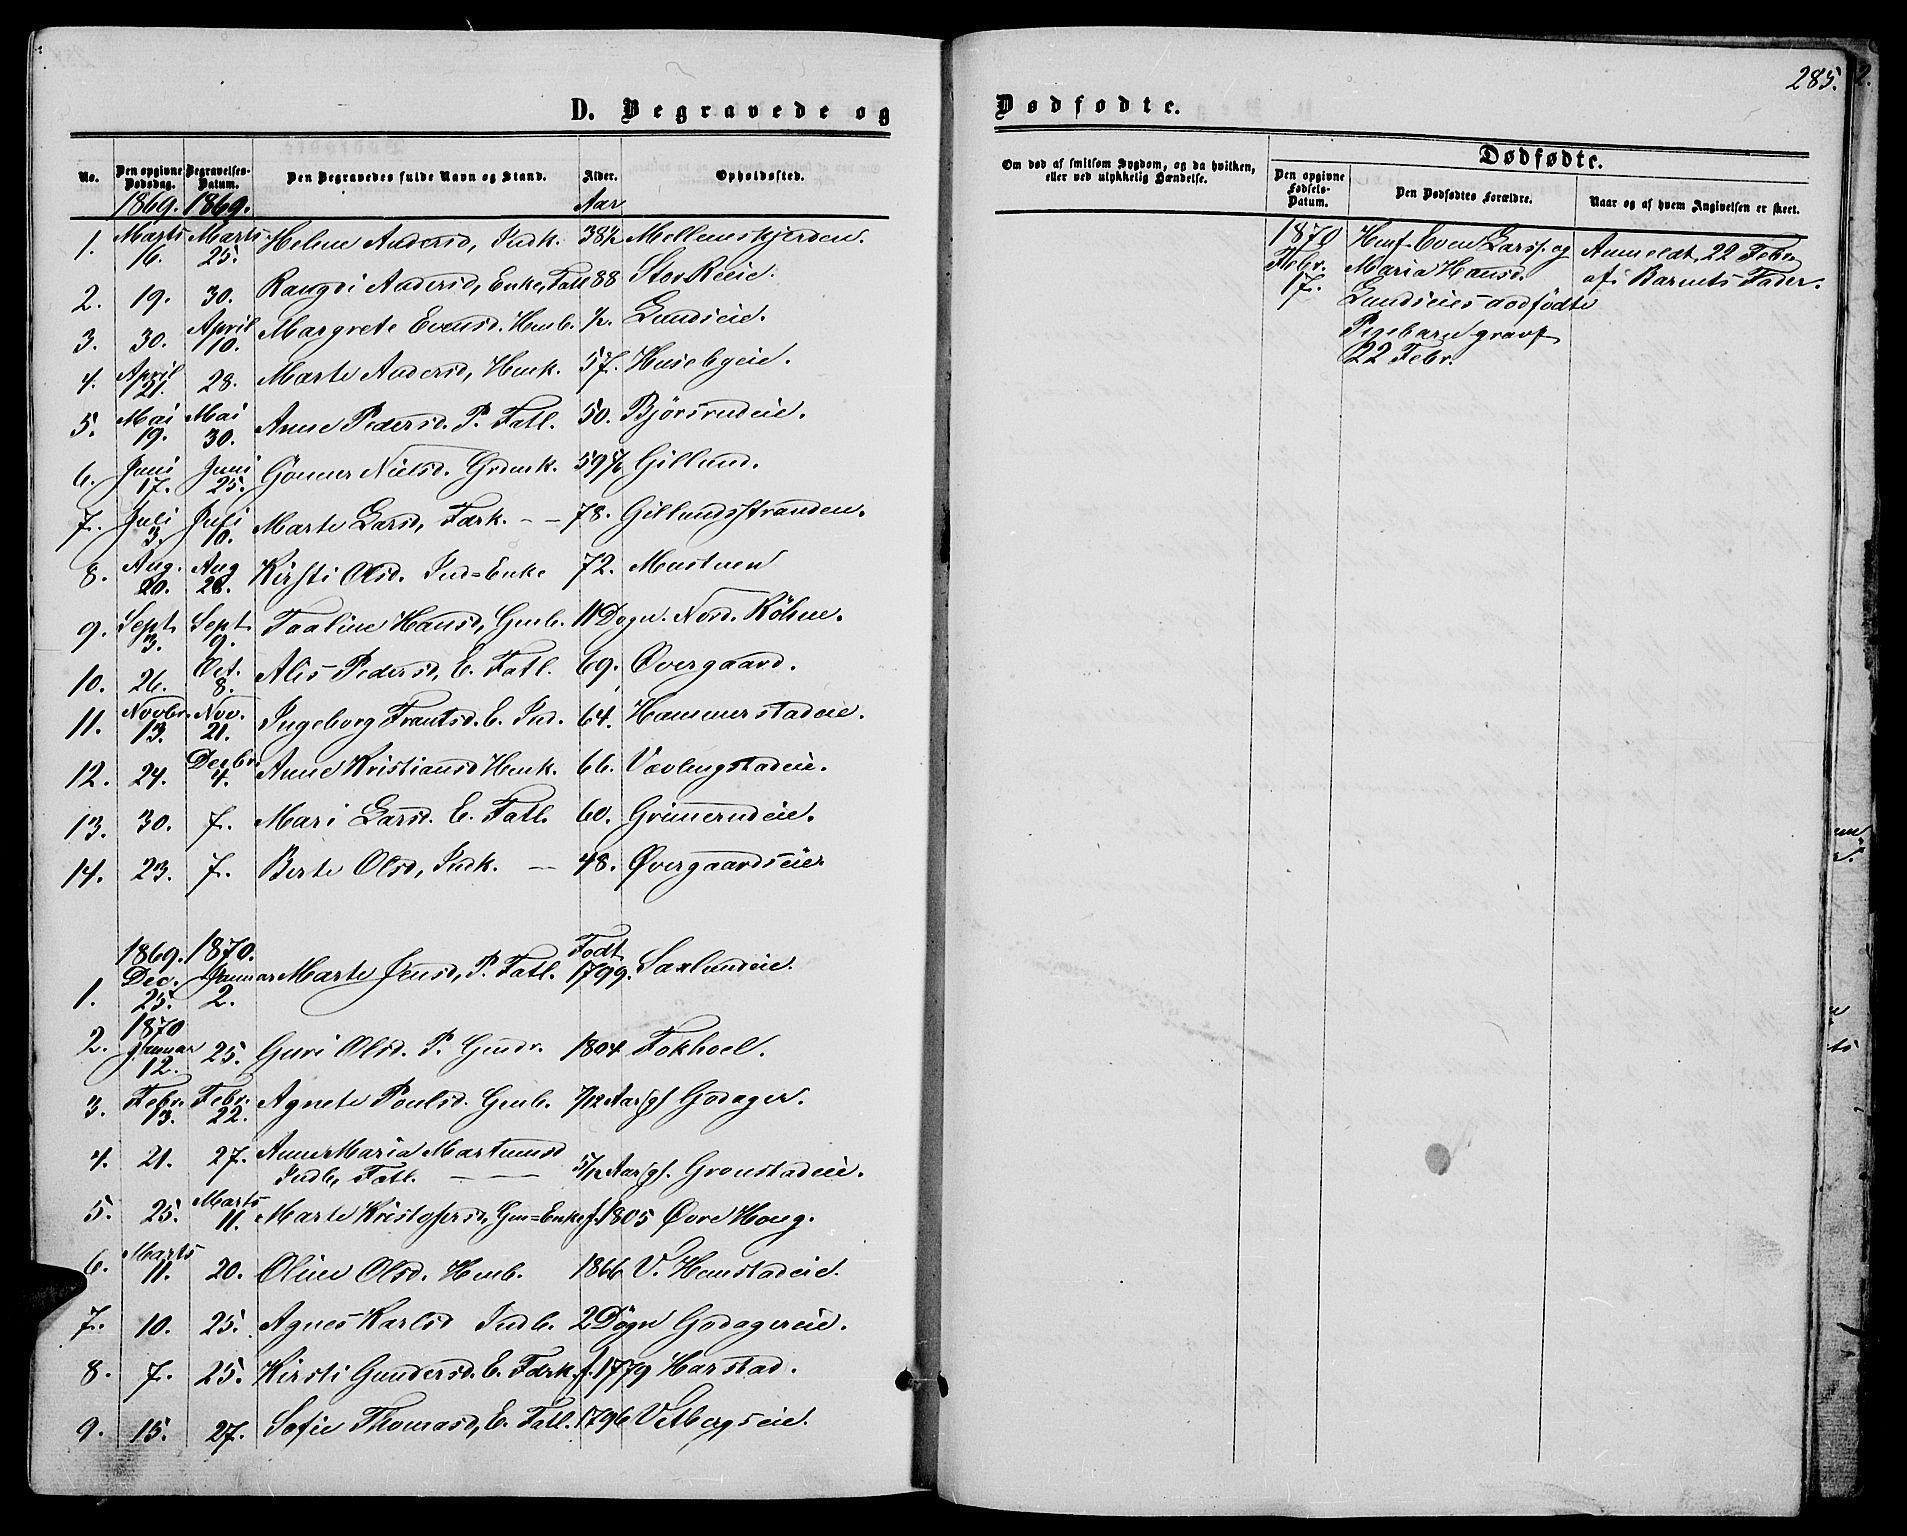 285.
D. Begravede og Dødfødte.
No. Den opgivne Dødsdag. Begravelses-Datum. Den Begravedes fulde Navn og Stand. Alder. Opholdssted.
1869. 1869. Aar
1. Marts 16. Marts 25. Helene Andersd, Indk. 38½ Mellemskjerden.
2. 19. 30. Rangdi Andersd, Enke, Fatl 88 Stor Reeie.
3. 30. April 10. Margrete Evensd. Husb. ½. Lundseie.
4. April 21. 28. Marte Andersd, Husk. 57. Husebyeie.
5. Mai 19. Mai 30. Anne Pedersd. P. Fatl. 50. Bjørsrudeie.
6. Juni 17. Juni 25. Gönner Nielsd. Grdmk. 59 Gillund.
7. Juli 3. Juli 10. Marte Larsd, Førk. - - 78. Gillundsstranden.
8. Aug. 20. Aug 28. Kirsti Olsd. Ind=Enke 72. Mustuen
9. Sept. 3. Sept. 9. Taaline Hansd, Gmb. 11 Dogn. Nord. Röhne.
10. 26. Oct. 8. Alis Pedersd, E. Fatl. 69. Øvergaard.
11. Novbr. 13. Nov. 21. Ingeborg Frantsd. E. Ind. 64. Hammerstadeie.
12. 24. Decbr. 4. Anne Kristiansd Husk. 66. Vævlingstadeie.
13. 30. 7. Mari Larsd. E. Fatl. 60. Grimerudeie.
14. 23. 7. Berte Olsd, Indk. — 48. Øvergaardseier
1869. 1870. Født
1. Dec. 25. Januar 2. Marte Jensd, P. Fatl. 1799. Saxlundeie.
1870
2. Januar 12. 25. Guri Olsd. P. Gmdr. 1804 Fokhoel.
3. Febr. 13. Febr. 22. Agnete Poulsd. Gmb. 7/12 Aar gl Godager.
4. 21. 27. Anne Maria Martinusd
Indb, Fatl. — — 5/12 Aar gl. Gronstadeie.
5. 25. Marts 11. Marte Kristofersd, Gm=Enke f. 1805 Øvre Houg.
6. Marts 11. 20. Oline Olsd. Husb. 1866 V. Hemstadeie.
7. 10. 25. Agnes Karlsd Indb. 2 Dögn Godagereie.
8. 7. 25. Kirsti Gundersd. E. Førk. f. 1779 Harstad.
9. 15. 27. Sofie Thomasd, E. Fatl. 1796 Vetbergseie.
Om død af smitsom Sygdom, og da hvilken, eller ved ulykkelig Hændelse.
Dødfødte.
Den opgivne Fødsels-Datum. Den Dødfødtes Forældre. Naar og af hvem Angivelsen er skeet.
1870 Husf. Even Larss. og Anmeldt 22 Febr.
Febr. Maria Hansd. af Barnets Fader.
17. Lundseies dodfödte
Pigebarn gravf.
22 Febr.